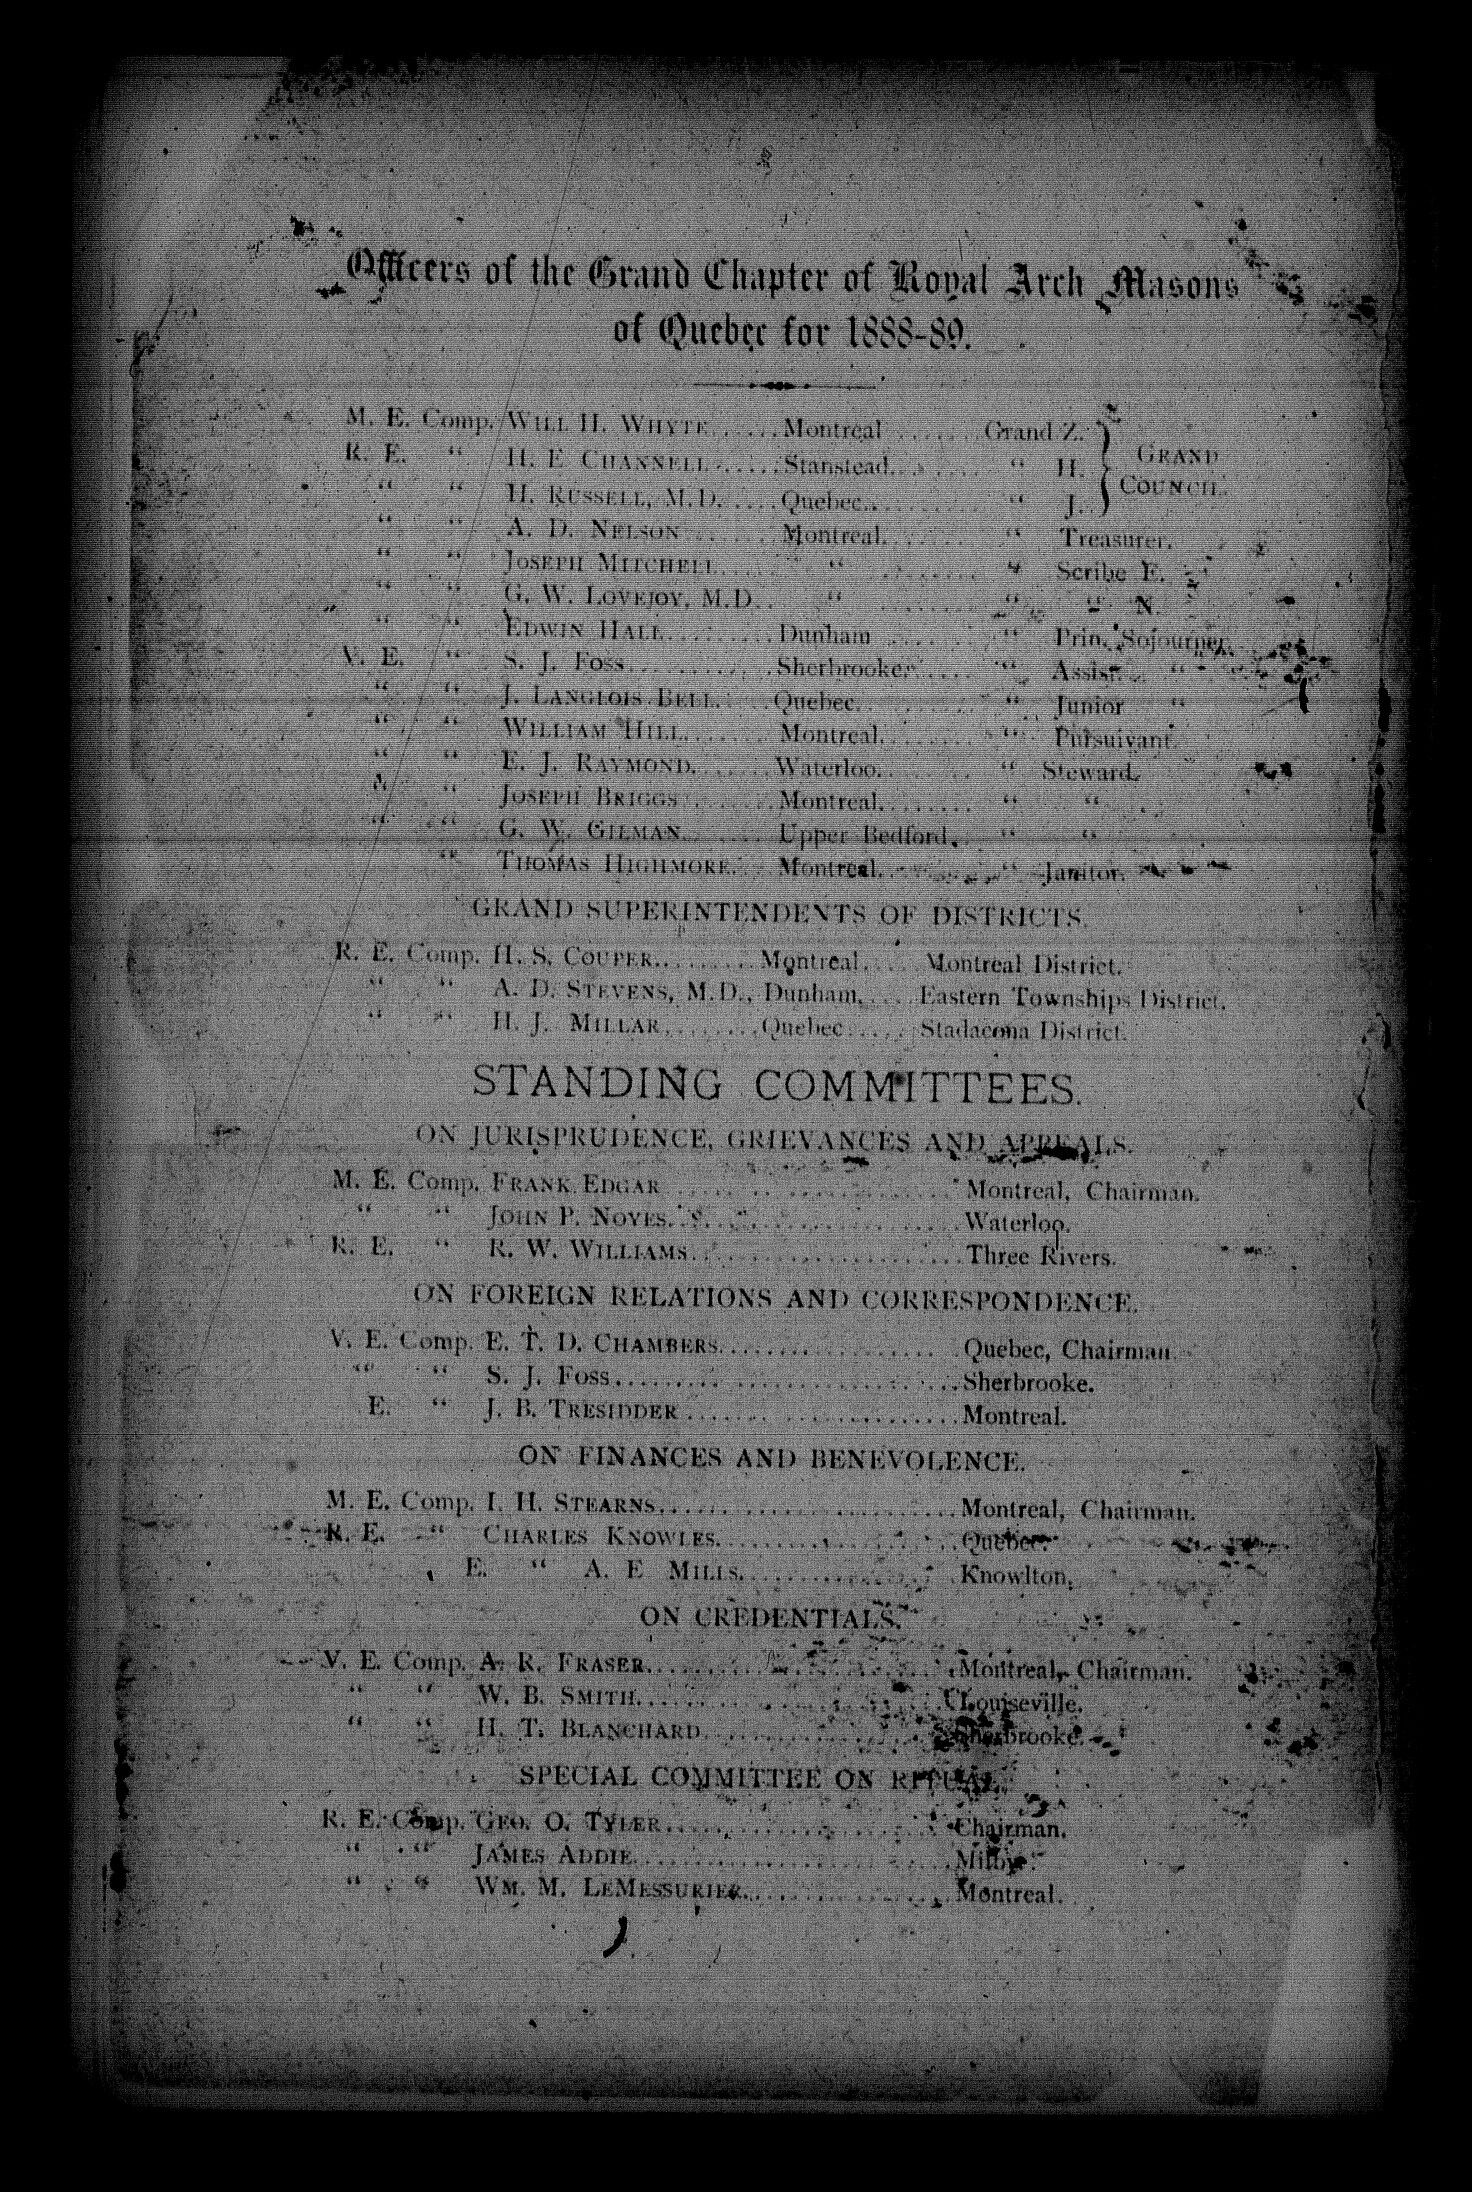 Officers of the Grand Chapter of Royal Arch Masons
of Quebec for 1888-89.
M. E. Comp. WILL H. WHYTE......Montreal.......Grand Z.
R. E. “ H. E CHANNELL......Stanstead........ “ H. GRAND
“ “ H. RUSSELL, M.D.....Quebec.......... “ J. COUNCIL.
“ “ A. D. NELSON.......Montreal....... “ Treasurer.
“ “ JOSEPH MITCHELL..... “ ........ “ Scribe E.
“ “ G. W. LOVEJOY, M.D.. “ ........ “ “ N.
“ “ EDWIN HALL.........Dunham ....... “ Prin. Sojourner.
V. E. “ S. J. FOSS...........Sherbrooke...... “ Assist. “
“ “ J. LANGLOIS BELL.....Quebec.......... “ Junior “
“ “ WILLIAM HILL.......Montreal........ “ Pursuivant.
“ “ E. J. RAYMOND.......Waterloo........ “ Steward.
“ “ JOSEPH BRIGGS.......Montreal........ “ “
“ “ G. W. GILMAN.......Upper Bedford.. “ “
“ THOMAS HIGHMORE...Montreal....... “ Janitor.
GRAND SUPERINTENDENTS OF DISTRICTS.
R. E. Comp. H. S. COUPER.........Montreal.....Montreal District.
“ “ A. D. STEVENS, M.D., Dunham.....Eastern Townships District.
“ “ H. J. MILLAR........Quebec.....Stadacona District.
STANDING COMMITTEES.
ON JURISPRUDENCE, GRIEVANCES AND APPEALS.
M. E. Comp. FRANK EDGAR ....................Montreal, Chairman.
“ “ JOHN P. NOYES.....................Waterloo.
R. E. “ R. W. WILLIAMS...................Three Rivers.
ON FOREIGN RELATIONS AND CORRESPONDENCE.
V. E. Comp. E. T. D. CHAMBERS...................Quebec, Chairman.
“ “ S. J. FOSS.........................Sherbrooke.
E. “ J. B. TRESIDDER ....................Montreal.
ON FINANCES AND BENEVOLENCE.
M. E. Comp. I. H. STEARNS.....................Montreal, Chairman.
R. E. “ CHARLES KNOWLES..................Quebec.
E. “ A. E MILLS................Knowlton.
ON CREDENTIALS.
V. E. Comp. A. R. FRASER......................Montreal, Chairman.
“ “ W. B. SMITH......................Louiseville.
“ “ H. T. BLANCHARD..................Sherbrooke.
SPECIAL COMMITTEE ON RITUAL.
R. E. Comp. GEO. O. TYLER....................Chairman.
“ “ JAMES ADDIE......................Milby.
“ “ WM. M. LEMESSURIER...............Montreal.